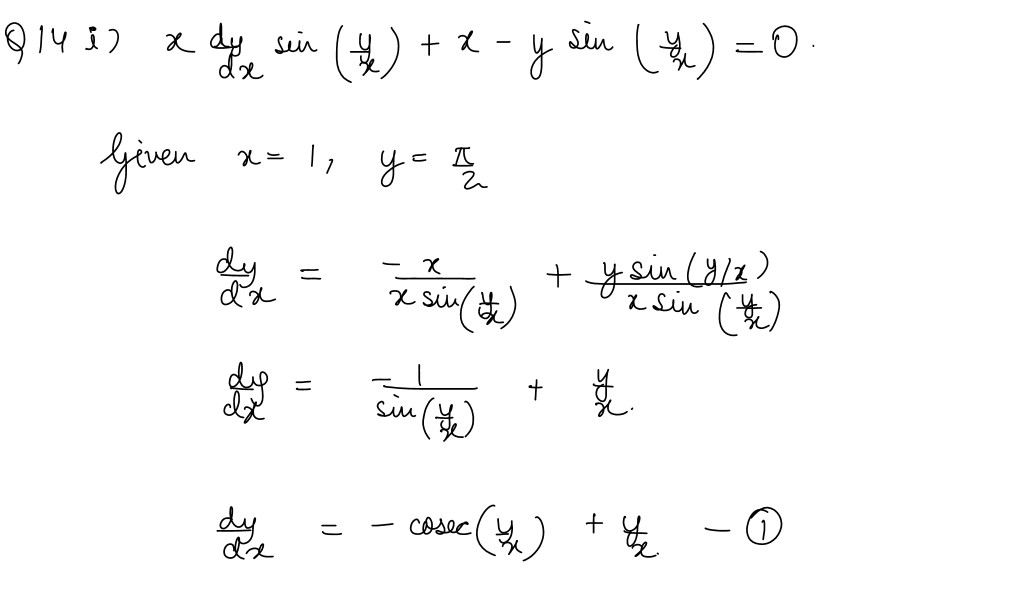 Q 14 i) x dy/dx sin (y/x) + x - y sin (y/x) = 0.
Given x = 1, y = π/2
dy/dx = -x/(x sin(y/x)) + y sin(y/x)/(x sin (y/x))
dy/dx = -1/sin(y/x) + y/x.
dy/dx = - cosec(y/x) + y/x - ①